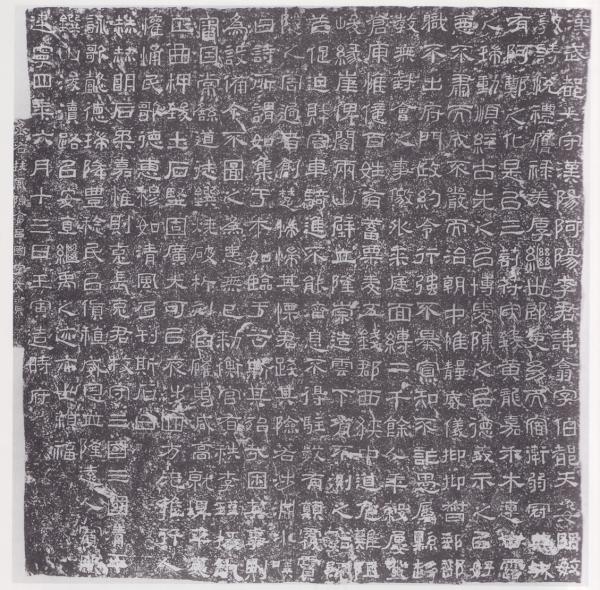 漢武都太守漢陽阿陽李君諱翕字伯都天姿明敏
敦詩悅禮膺祿美厚繼世郎吏幼而宿衛弱冠典城
有阿鄭之化是以三剖符守致黃龍嘉禾木連甘露
之瑞動順經古先之以博愛陳之以德義示之以好
惡不肅而成不嚴而治朝中惟靜威儀抑抑督郵部
職不出府門政約令行強不暴寡知不詐愚屬縣趍
教無對會之事徼外來庭面縛二千餘人年穀屢登
倉庾惟億百姓有蓄粟麥五錢郡西狹中道危難阻
峻緣崖俾閣兩山壁立隆崇造雲下有不測之谿阨
芐促迫財容車騎進不能濟息不得駐數有顛覆霣
隧之害過者創楚惴惴其慄君踐其險若涉淵冰歎
曰詩所謂如集于木如臨于谷斯其殆哉困其事則
為設備今不圖之為患無已勑衡官有秩李瑾掾仇
審因常繇道徒鐉燒破析刻臽磪嵬減高就埤平夷
正曲柙致土石堅固廣大可以夜涉四方无雍行人
懽悀民歌德惠穆如清風乃刊斯石曰
赫赫明后柔嘉惟則克長克君牧守三國三國清平
詠歌懿德瑞降豐稔民以貨稙威恩並隆遠人賓服
鐉山浚瀆路以安直繼禹之迹亦世賴福
建寧四年六月十三日壬寅造時府